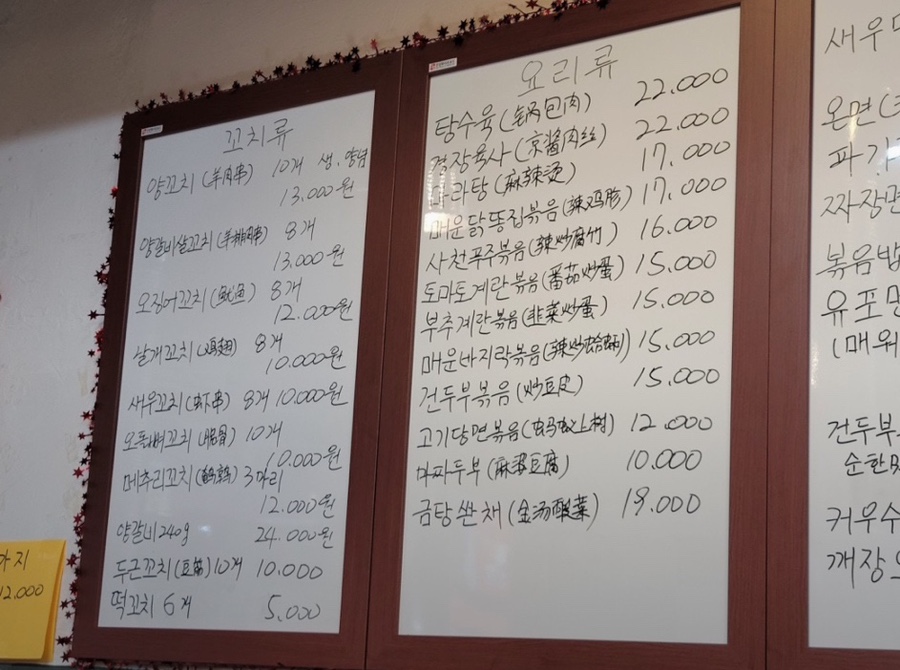 꼬치류
양꼬치(羊肉串) 10개 생,양념
13.000원
양갈비살꼬치(羊排肉串) 8개
13.000원
오징어꼬치(鱿鱼) 8개
12.000원
날개꼬치(鸡翅) 8개
10.000원
새우꼬치(虾串) 8개 10.000원
오돌뼈꼬치(脆骨) 10개
10.000원
메추리꼬치(鹌鹑) 3마리
12.000원
양갈비 240g 24.000원
두근꼬치 10개 10.000
떡꼬치 6개 5.000
요리류
탕수육(锅包肉) 22.000
경장육사(京酱肉丝) 22.000
마라탕(麻辣烫) 17.000
매운닭똥집볶음(辣鸡胗) 17.000
사천푸주볶음(辣炒腐竹) 16.000
토마토계란볶음(番茄炒蛋) 15.000
부추계란볶음(韭菜炒蛋) 15.000
매운바지락볶음(辣炒蛤蜊) 15.000
건두부볶음(炒豆皮) 15.000
고기당면볶음(蚂蚁上树) 12.000
마파두부(麻婆豆腐) 10.000
금탕쏸채(金汤酸菜) 19.000
새우
온면
파기
짜장면
볶음밥
유포면
(매워
건두부
순한맛
꿔우수
깨장
아지
12.000